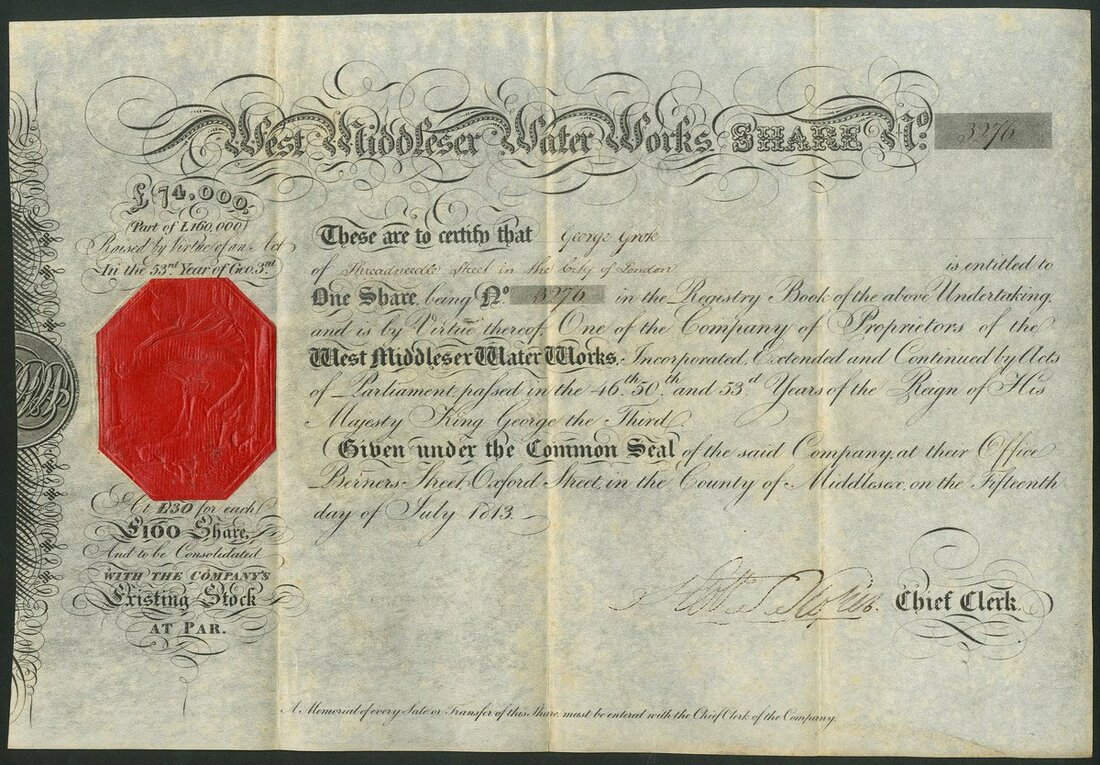 West Middlesex Water Works SHARE No. 3276
£74,000,
(Part of £160,000)
Raised by Virtue of an Act
In the 53rd Year of Geo: 3rd
At £30 for each
£100 Share,
And to be Consolidated
WITH THE COMPANY'S
Existing Stock
AT PAR.
These are to certify that George Grote
of Threadneedle Street in the City of London is entitled to
One Share, being No. 3276 in the Registry Book of the above Undertaking,
and is by Virtue thereof, One of the Company of Proprietors of the
West Middlesex Water Works, Incorporated, Extended and Continued by Acts
of Parliament passed in the 46th, 50th, and 53d Years of the Reign of His
Majesty King George the Third.
Given under the Common Seal of the said Company, at their Office
Berners Street, Oxford Street, in the County of Middlesex, on the Fifteenth
day of July 1813.
Chief Clerk.
A Memorial of every Sale or Transfer of this Share must be entered with the Chief Clerk of the Company.